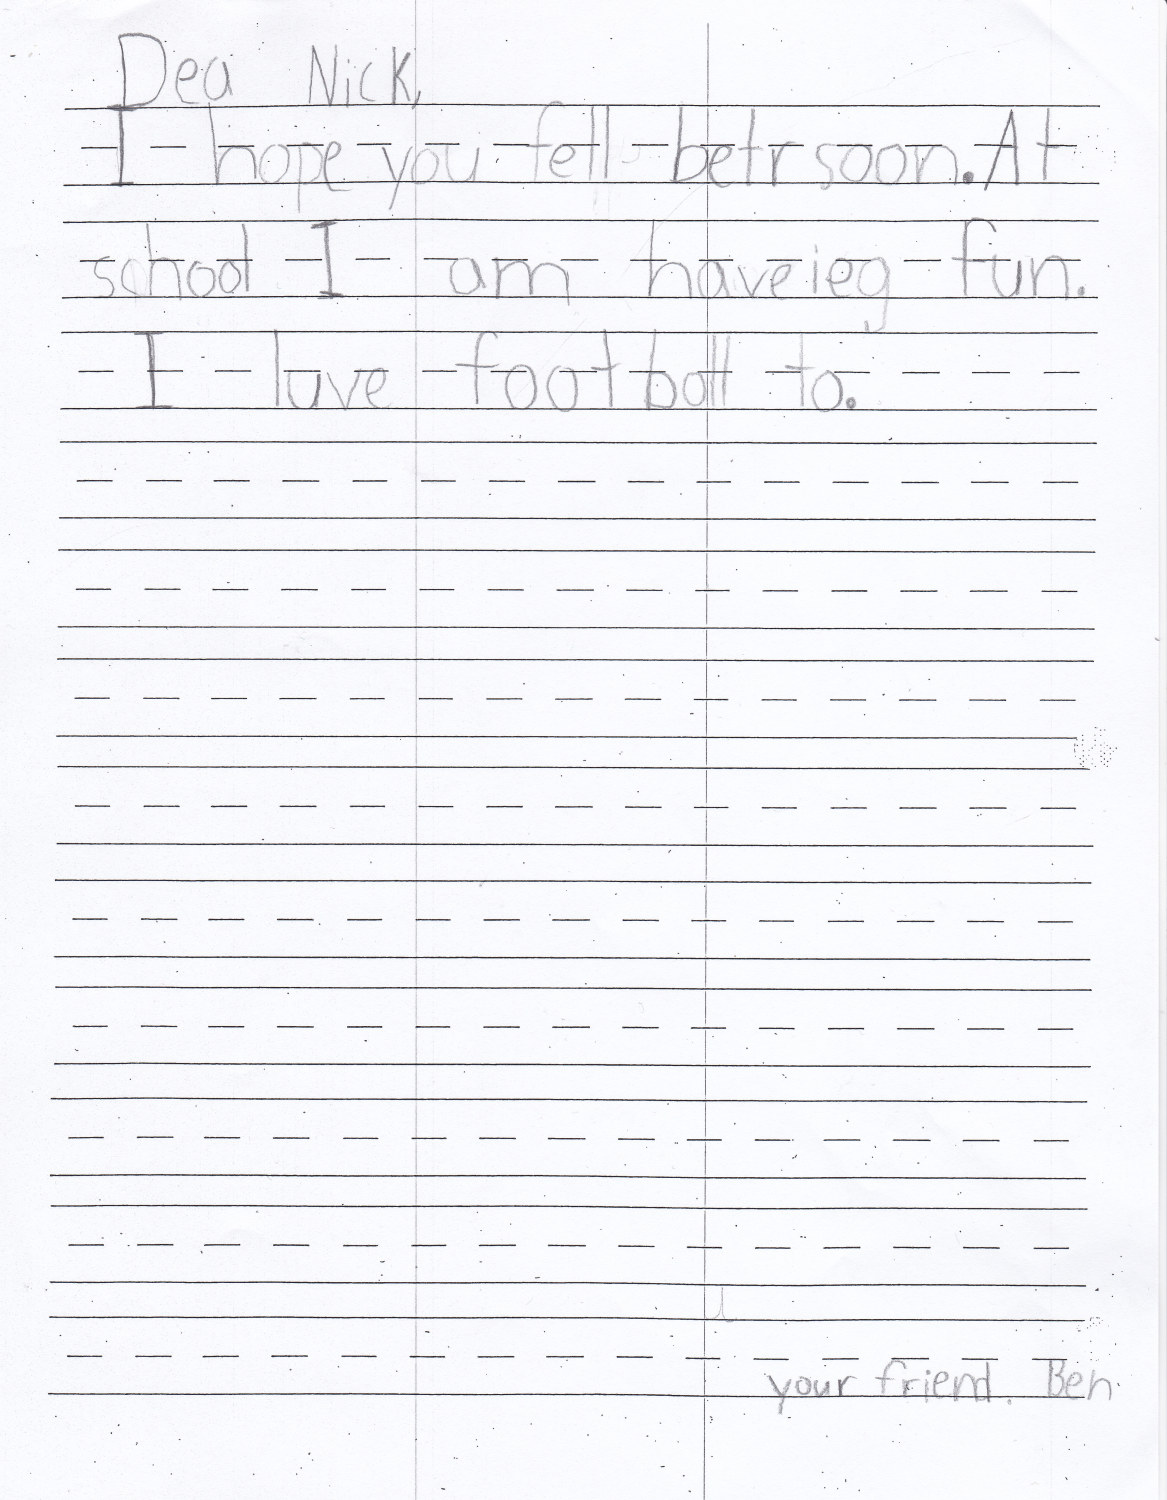 Dea Nick,
I hope you fell betr soon. At
school I am haveieg fun.
I luve football to.
your friend. Ben